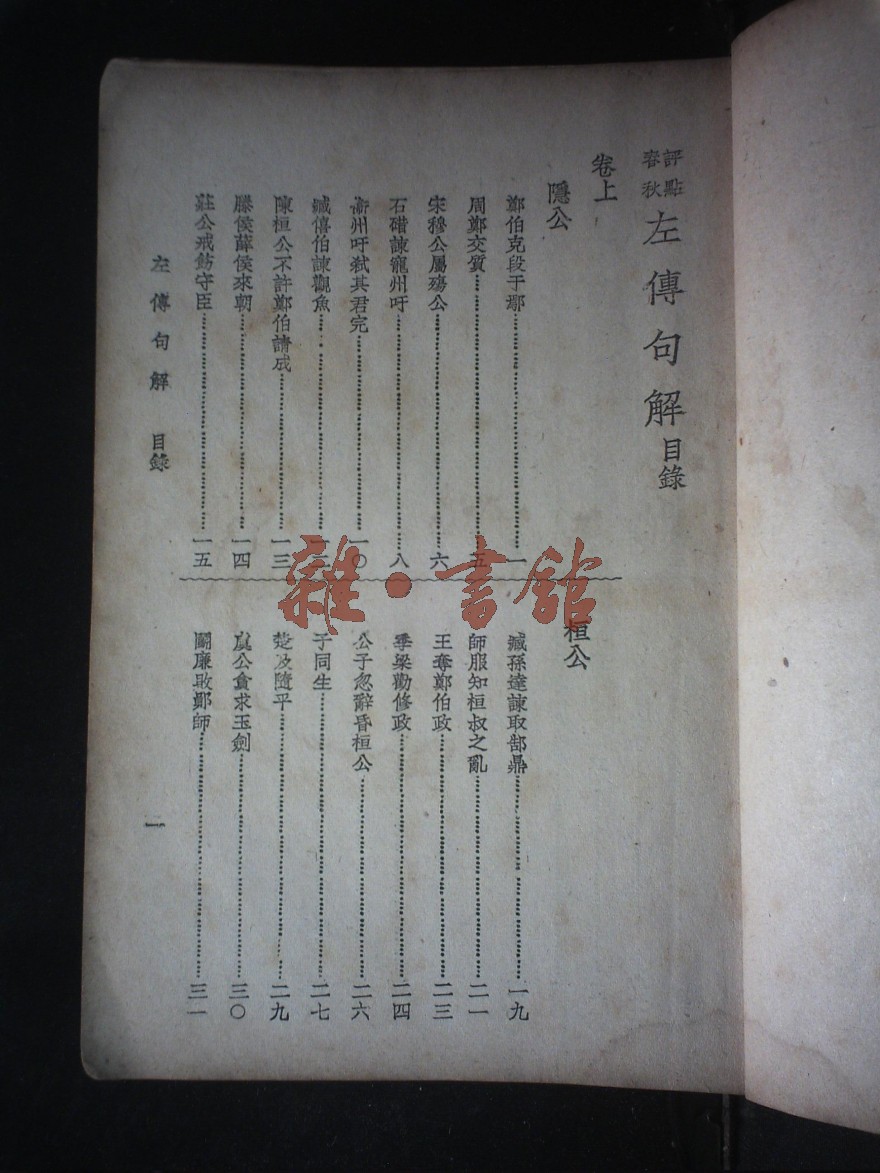 評點春秋左傳句解目錄
卷上
隱公
鄭伯克段于鄢 一
周鄭交質 五
宋穆公屬殤公 六
石碏諫寵州吁 八
衛州吁弑其君完 一〇
臧僖伯諫觀魚 一二
陳桓公不許鄭伯請成 一三
滕侯薛侯來朝 一四
莊公戒飭守臣 一五
桓公
臧孫達諫取郜鼎 一九
師服知桓叔之亂 二一
王奪鄭伯政 二三
季梁勸修政 二四
公子忽辭昏桓公 二六
子同生 二七
楚及隨平 二九
虞公貪求玉劍 三〇
鬭廉敗鄖師 三一
左傳句解 目錄
一
雜·書館